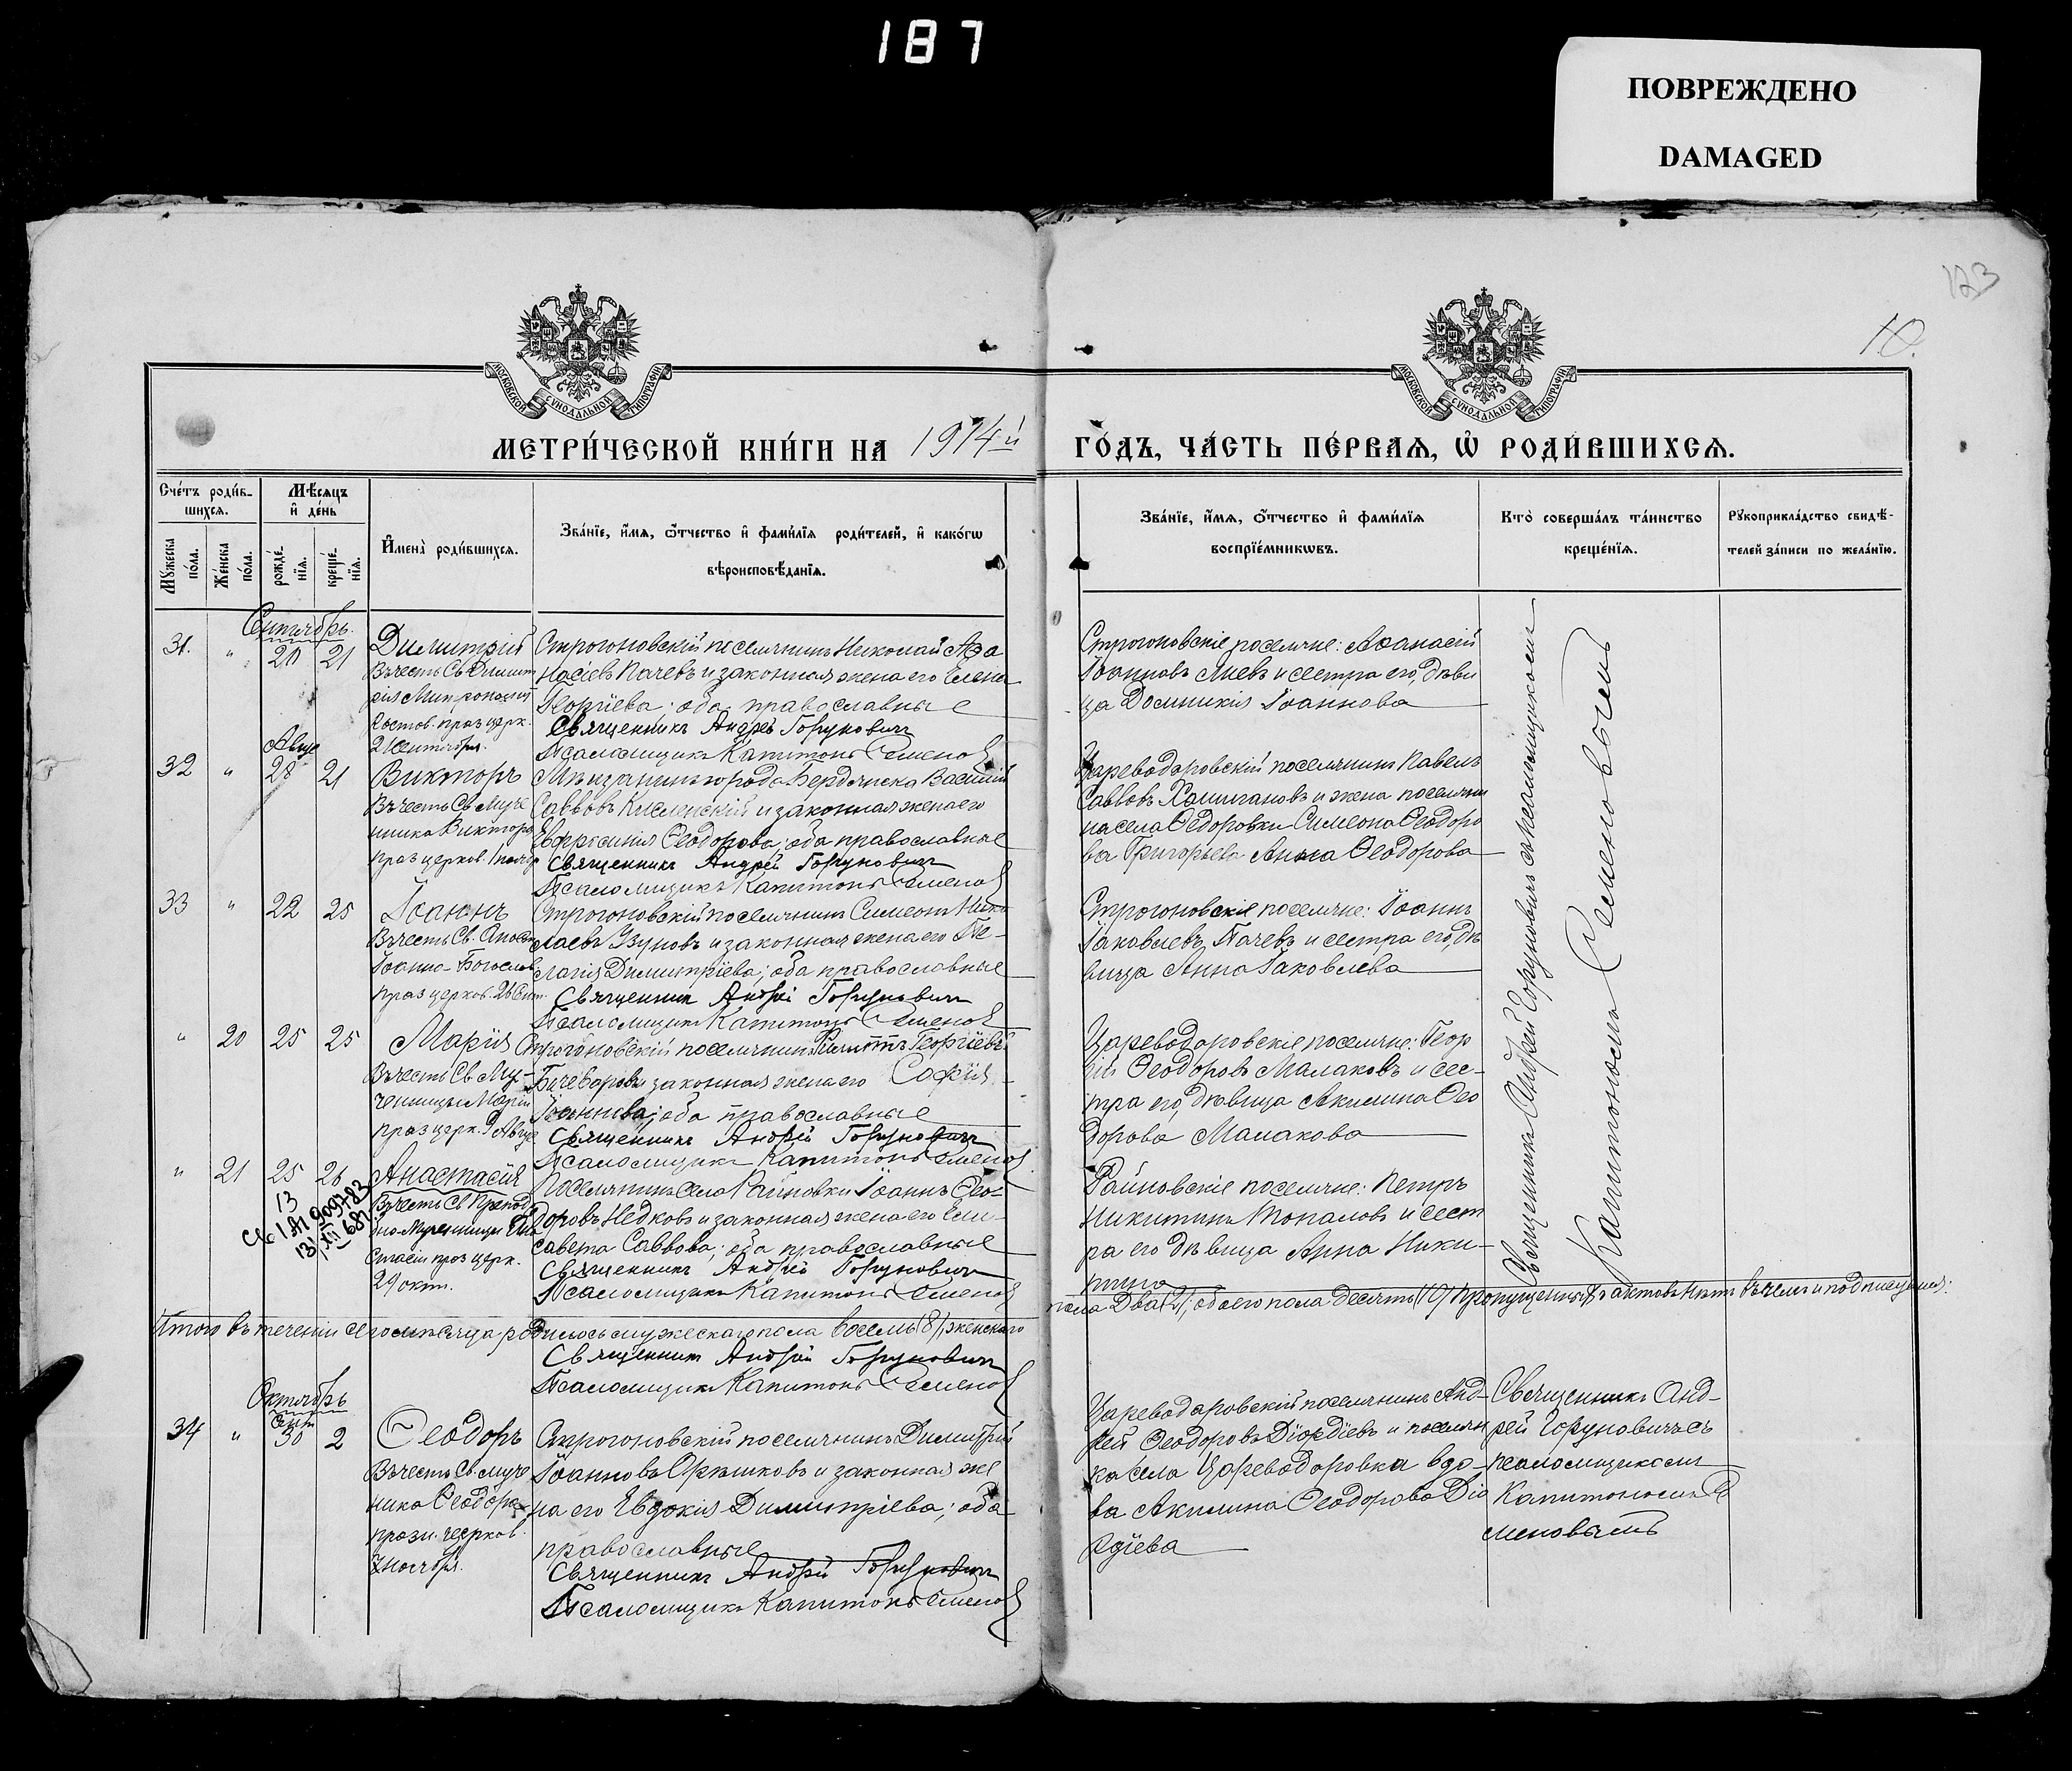 187
ПОВРЕЖДЕНО
DAMAGED
123
10.
МОСКОВСКОЙ СУНОДАЛЬНОЙ ТИПОГРАФІИ
МОСКОВСКОЙ СУНОДАЛЬНОЙ ТИПОГРАФІИ
МЕТРИ́ЧЕСКОЙ КНИ́ГИ НА 1914й ГО́ДЪ, ЧА́СТЬ ПЕ́РВАѦ, Ѡ҆ РОДИ́ВШИХСѦ.
Сче́тъ роди́в-
шихсѧ.
Мѣ́сѧцъ
и҆ де́нь
Мꙋ́жеска
по́ла.
Же́нска
по́ла.
рожде́-
нїѧ.
креще́-
нїѧ.
И҆мена̀ роди́вшихсѧ.
Зва́нїе, и҆́мѧ, ѻ҆́тчество и҆ фами́лїѧ роди́телей, и҆ како́гѡ
вѣроисповѣ́данїѧ.
Зва́нїе, и҆́мѧ, ѻ҆́тчество и҆ фами́лїѧ
воспрїе́мникѡвъ.
Кто̀ соверша́лъ та́инство
креще́нїѧ.
Рꙋкоприкла́дство свидѣ́-
телей за́писи по жела́нїю.
Сентябрь.
31. " 20 21
Димитрій
Въ честь Св. Димит
рія Митрополит
Ростов. праз. церк.
21 Сентября.
Строгоновскій поселянинъ Николай Аѳа
насіевъ Пачевъ и законная жена его Елена
Георгіева; оба православные
Священникъ Андрей Горуновичъ
Псаломщикъ Капитонъ Семенов
Строгоновскіе поселяне: Аѳанасій
Іоанновъ Лиевъ и сестра его, дѣви
ца Домникія Іоаннова
Авгус
32 " 28 21
Викторъ
Въ честь Св. Муче
ника Виктора
праз. церков.
Мѣщанинъ города Бердянска Василій
Саввовъ Кисленскій и законная жена его
Евфросинія Ѳеодорова; оба православные
Священникъ Андрей Горуновичъ
Псаломщикъ Капитонъ Семенов
Цареводаровскій поселянинъ Павелъ
Саввовъ Хашигановъ и жена поселяни
на села Ѳедоровки Симеона Ѳеодоро
ва Григорьева Анна Ѳеодорова
33 " 22 25
Іоаннъ
Въ честь Св. Апост
Іоанна-Богослов
праз. церков. 26 Сент.
Строгоновскій поселянинъ Симеонъ Нико
лаевъ Узуновъ и законная жена его Пе-
лагія Димитріева; оба православные
Священник Андрей Горунович
Псаломщикъ Капитонъ Семенов
Строгоновскіе поселяне: Іоаннъ
Іаковлевъ Пачевъ и сестра его, дѣ
вица Анна Іаковлева
" 20 25 25
Марія
Въ честь Св. Му-
ченицы Маріи
праз. церк. 9 Авгус
Строгоновскій поселянинъ Филиппъ Георгіевъ
Бичеваровъ законная жена его Софія
Іоаннова; оба православные
Священникъ Андрей Горуновичъ
Псаломщикъ Капитонъ Семенов
Цареводаровскіе поселяне: Геор
гій Ѳеодоровъ Малаковъ и сес-
тра его, дѣвица Акилина Ѳео
дорова Малакова
" 21 25 26
13
Анастасія
Въ честь Св. Препод
бно-Мученицы Ана
стасіи праз. церк.
29 окт.
Поселянинъ села Райновки Іоаннъ Ѳео-
доровъ Недковъ и законная жена его Ели-
савета Саввова; оба православные
Священникъ Андрей Горуновичъ
Псаломщикъ Капитонъ Семенов
Райновскіе поселяне: Петръ
Никитинъ Топаловъ и сест
ра его дѣвица Анна Ники-
тина
Священникъ Андрей Горуновичъ съ псаломщикомъ
Капитономъ Семеновымъ
Итого въ теченіи сего мѣсяца родилось мужескаго пола восемь (8), женскаго
пола два (2), обоего пола десять (10) пропущенныхъ актовъ нѣтъ въ чемъ и подписуемся:
Священник Андрей Горуновичъ
Псаломщикъ Капитонъ Семенов
Октябрь
Сент
34 " 30 2
Ѳеодоръ
Въ честь Св. муче
ника Ѳеодора
празн. церков.
Строгоновскій поселянинъ Димитрій
Іоанновъ Орѣшковъ и законная же
на его Евдокія Димитріева; оба
православные
Священникъ Андрей Горуновичъ
Псаломщикъ Капитонъ Семенов
Цареводаровскій поселянинъ Анд-
рей Ѳеодоровъ Діордіевъ и поселян
ка села Цареводаровка вдо-
ва Акилина Ѳеодорова Діо
рдіева
Священникъ Анд-
рей Горуновичъ съ
псаломщикомъ
Капитономъ Се
меновымъ